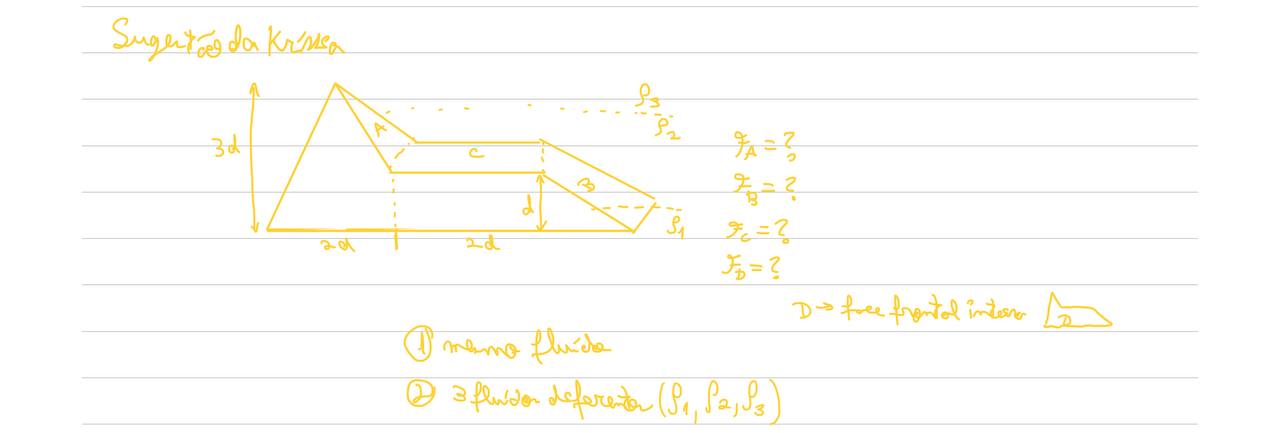 Sugestão da Krissa
ρ3
ρ2
A
3d
C
F_A = ?
B
F_B = ?
d
ρ1
F_C = ?
2d
2d
F_D = ?
D → face frontal inteira
D
① mesmo fluido
② 3 fluidos deferentes (ρ1, ρ2, ρ3)